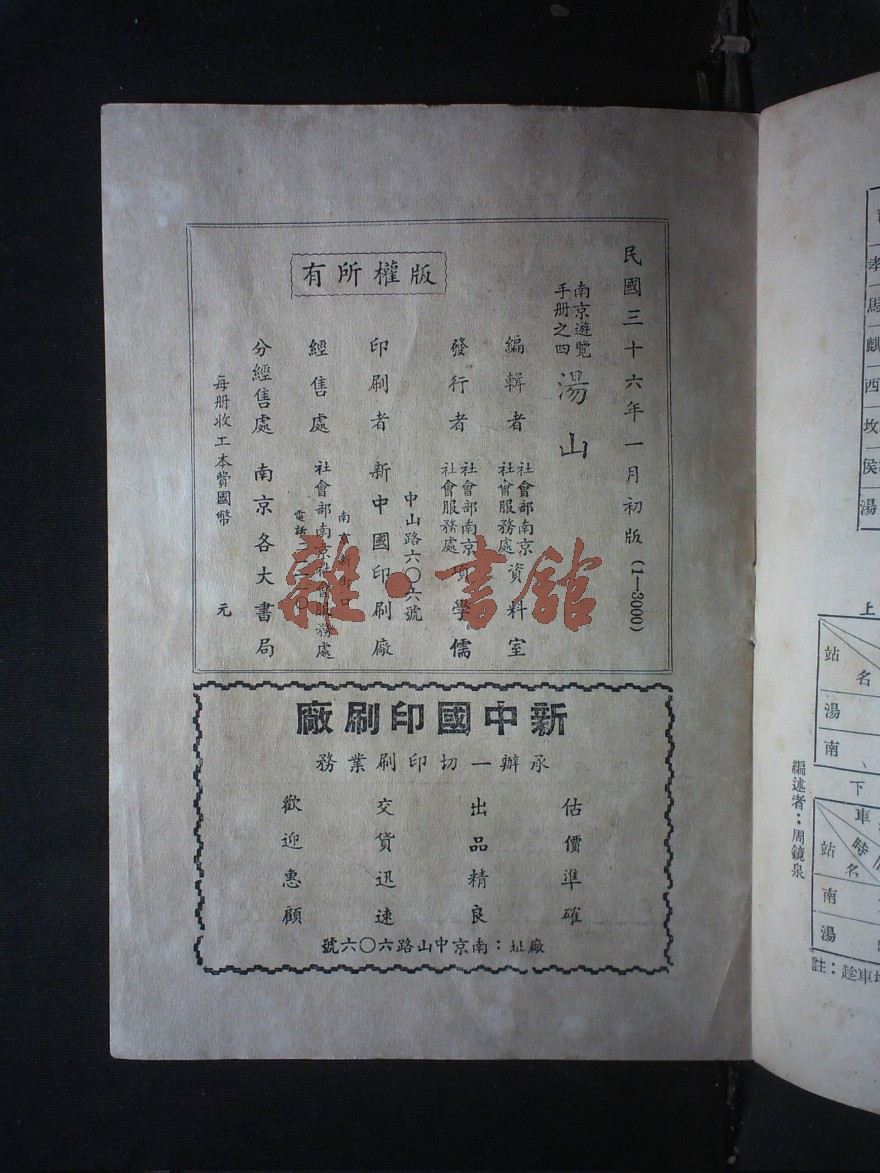 民國三十六年一月初版(1—3000)
南京遊覽
手册之四
湯山
編輯者 社會部南京社會服務處資料室
發行者 社會部南京社會服務處項學儒
印刷者 新中國印刷廠
中山路六〇六號
經售處 社會部南京社會服務處
南京新街口
電話
分經售處 南京各大書局
每册收工本費國幣 元
版權所有
新中國印刷廠
承辦一切印刷業務
估價準確
出品精良
交貨迅速
歡迎惠顧
廠址：南京中山路六〇六號
雜·書館
孝
馬
麒
西
坟
侯
湯
上
站名
湯
南
下
車
站名
時
南
湯
註：趁車
編述者：周鏡泉